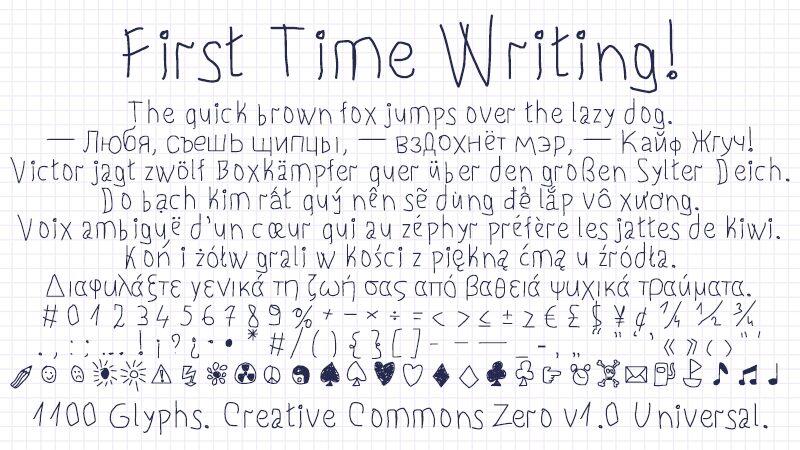 First Time Writing!
The quick brown fox jumps over the lazy dog.
— Любя, съешь щипцы, — вздохнёт мэр, — Кайф Жгуч!
Victor jagt zwölf Boxkämpfer quer über den großen Sylter Deich.
Do bạch kim rất quý nên sẽ dùng để lắp vô xương.
Voix ambiguë d'un cœur qui au zéphyr préfère les jattes de kiwi.
Koń i żółw grali w kości z piękną ćmą u źródła.
Διαφυλάξτε γενικά τη ζωή σας από βαθειά ψυχικά τραύματα.
# 0 1 2 3 4 5 6 7 8 9 % + − × ÷ = < > ≤ ± ≥ € £ $ ¥ ¢ ¼ ½ ¾
. , : ; … ! ¡ ? ¿ · • * # / ( ) { } [ ] - – — _ - , „ “ ” ‘ ’ « » ‹ › " '
✐ ☺ ☹ ☀ ☼ ⚠ ☢ ☮ ☯ ♠ ♤ ♥ ♡ ♦ ♢ ♣ ♧ ☞ ⏰ ☠ ✉ ⛽ ⛵ ♪ ♫ ♩
1100 Glyphs. Creative Commons Zero v1.0 Universal.